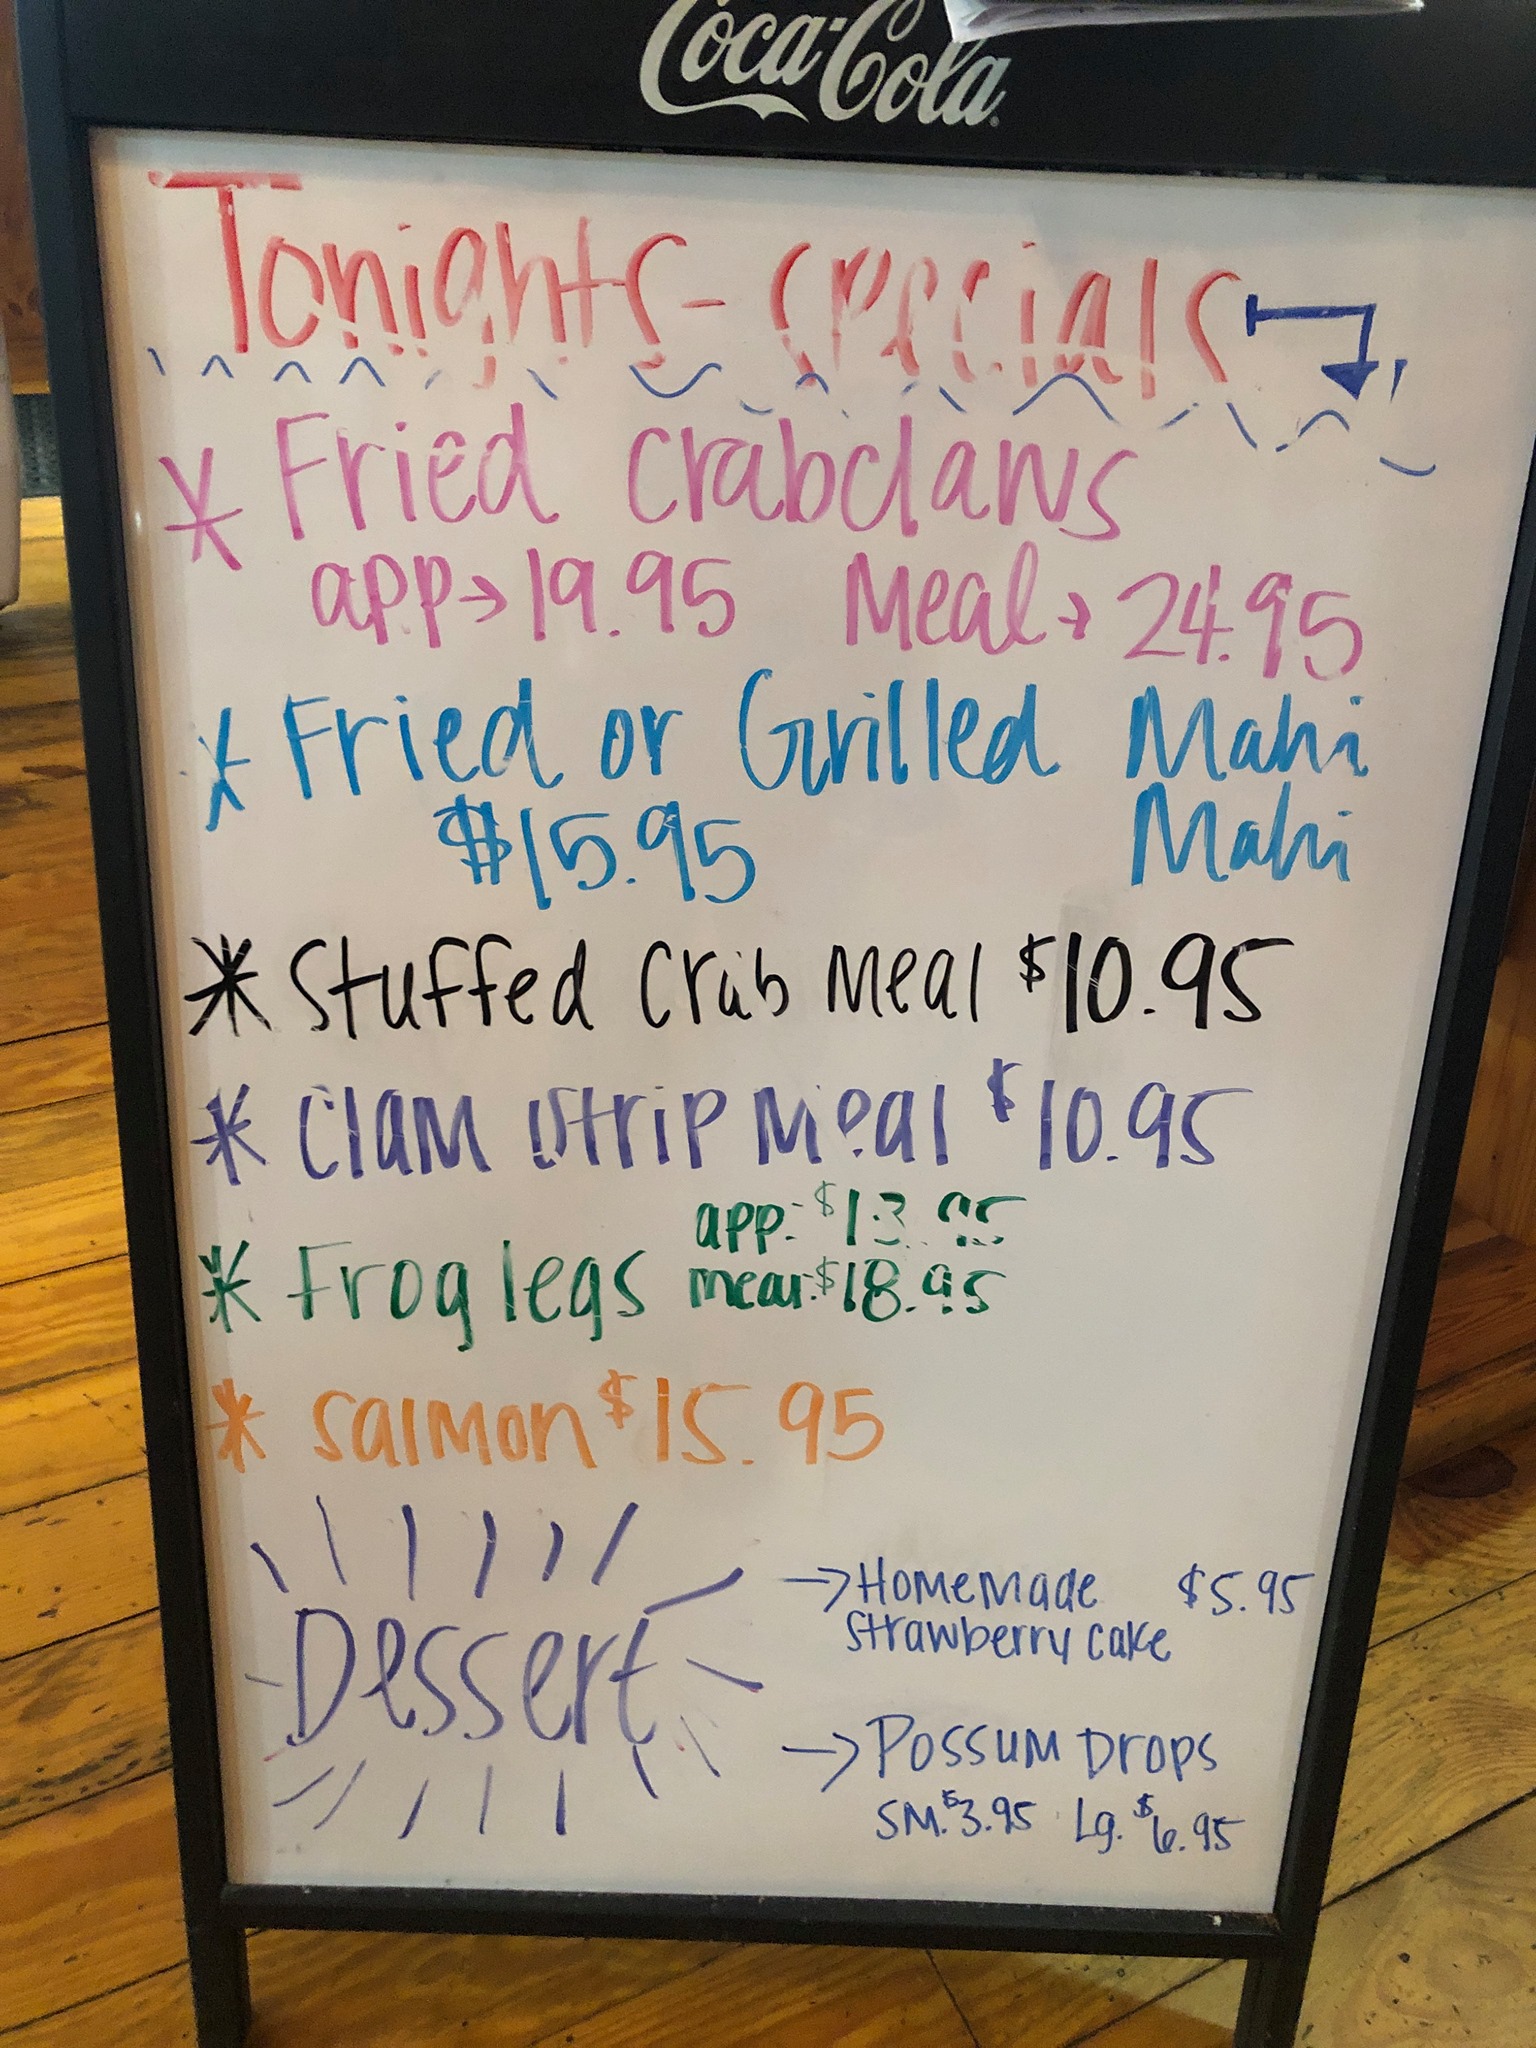 Coca-Cola
Tonights-specials
* Fried crabclaws
app→19.95 Meal→24.95
* Fried or Grilled Mahi
$15.95 Mahi
* Stuffed crab Meal $10.95
* Clam strip Meal $10.95
app: $13.95
* Froglegs meal: $18.95
* Salmon $15.95
Dessert
→Homemade $5.95
strawberry cake
→Possum Drops
SM. $3.95 Lg. $6.95